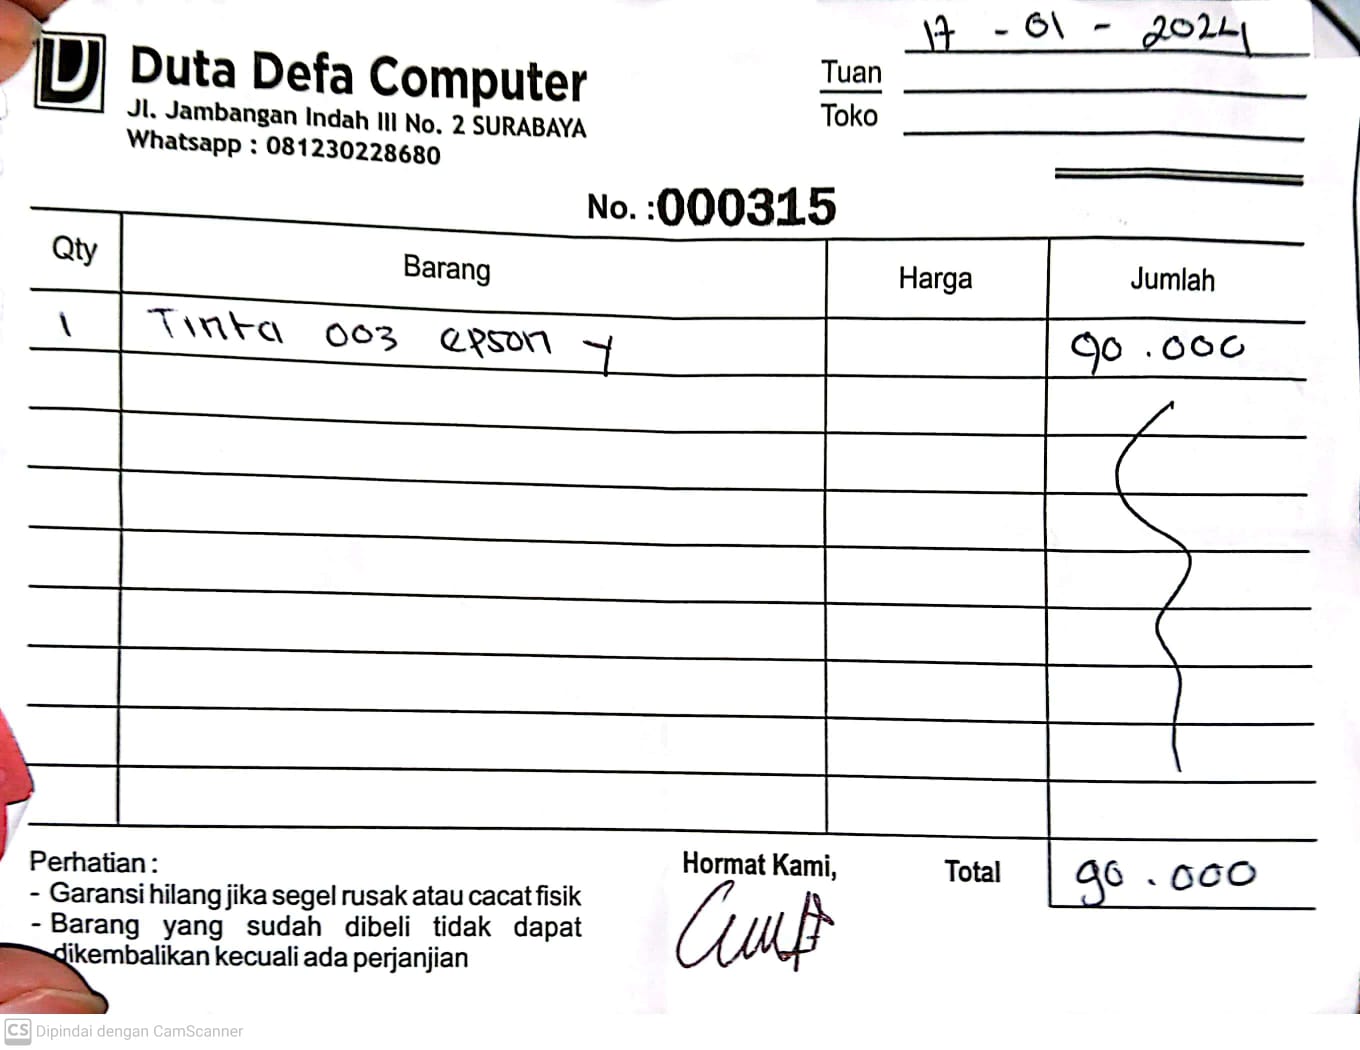 17 - 01 - 2024
Duta Defa Computer
Jl. Jambangan Indah III No. 2 SURABAYA
Whatsapp : 081230228680
Tuan
Toko
No. : 000315
Qty Barang Harga Jumlah
1 Tinta 003 epson Y 90.000
Perhatian :
- Garansi hilang jika segel rusak atau cacat fisik
- Barang yang sudah dibeli tidak dapat
dikembalikan kecuali ada perjanjian
Hormat Kami,
Total 90.000
CS Dipindai dengan CamScanner